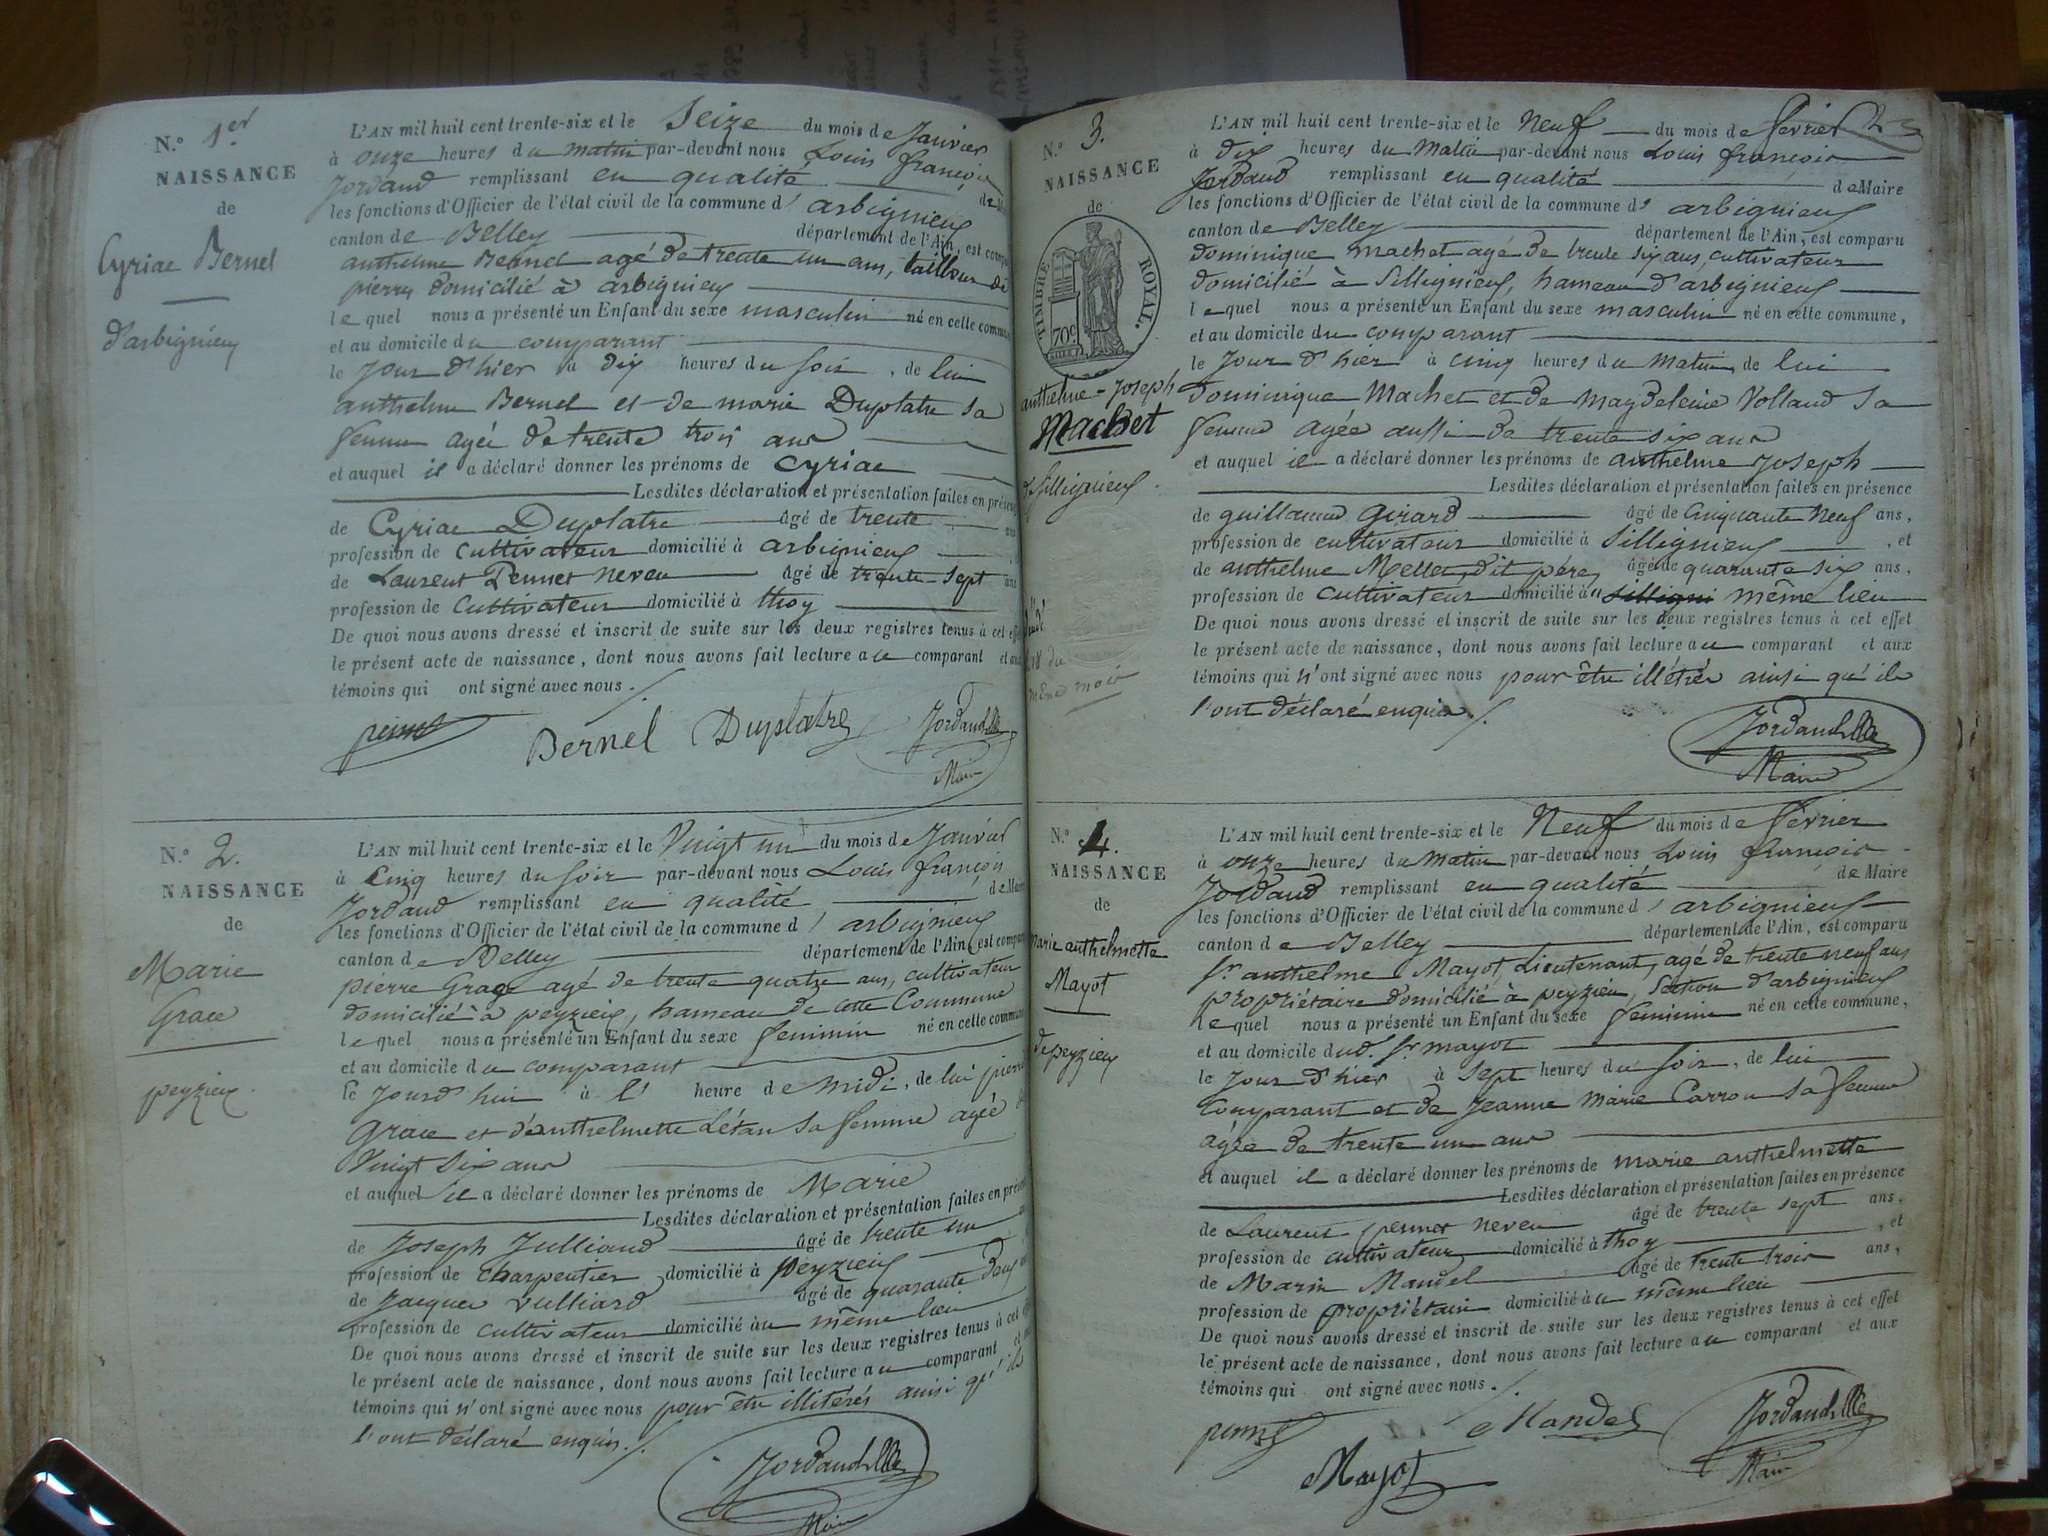 N.° 1.er
NAISSANCE
de
Cyriac Bernel
d'arbignieu
L'AN mil huit cent trente-six et le Seize du mois de Janvier
à onze heures du matin par-devant nous Louis françois
Jordand remplissant en qualité de
les fonctions d'Officier de l'état civil de la commune d'arbignieu
canton de Belley département de l'Ain, est compa
anthelme Bernel agé de trente un ans, tailleur de
pierres domicilié à arbignieu
lequel nous a présenté un Enfant du sexe masculin né en cette commune
et au domicile du comparant
le jour d'hier à dix heures du soir, de lui
anthelme Bernel et de marie Duplatre sa
femme agée de trente trois ans
et auquel il a déclaré donner les prénoms de Cyriac
Lesdites déclaration et présentation faites en présence
de Cyriac Duplatre âgé de trente ans
profession de cultivateur domicilié à arbignieu
de Laurent Pennet neveu âgé de trente-sept ans
profession de cultivateur domicilié à thoy
De quoi nous avons dressé et inscrit de suite sur les deux registres tenus à cet effet
le présent acte de naissance, dont nous avons fait lecture au comparant et aux
témoins qui ont signé avec nous.
Bernel Duplatre Jordand
Maire
N.° 2.
NAISSANCE
de
Marie
Grace
peyzieu
L'AN mil huit cent trente-six et le Vingt un du mois de Janvier
à Cinq heures du soir par-devant nous Louis françois
Jordand remplissant en qualité de Maire
les fonctions d'Officier de l'état civil de la commune d'arbignieu
canton de Belley département de l'Ain, est compa
pierre Grace agé de trente quatre ans, cultivateur
domicilié à peyzieu, hameau de cette Commune
lequel nous a présenté un Enfant du sexe feminin né en cette commune
et au domicile du comparant
le jourd'hui à l'heure de midi, de lui pierre
Grace et d'anthelmette Létan sa femme agée de
Vingt six ans
et auquel il a déclaré donner les prénoms de Marie
Lesdites déclaration et présentation faites en présen
de Joseph Julliand âgé de trente un
profession de charpentier domicilié à peyzieu
de Jacques Vulliard âgé de quarante deux
profession de cultivateur domicilié au même lieu
De quoi nous avons dressé et inscrit de suite sur les deux registres tenus à cet
le présent acte de naissance, dont nous avons fait lecture au comparant et
témoins qui n'ont signé avec nous pour être illitérés ainsi qu'ils
l'ont déclaré enquis.
Jordand
Maire
N.° 3.
NAISSANCE
de
TIMBRE ROYAL.
70c.
anthelme-Joseph
Machet
Sillignieu
même mois
L'AN mil huit cent trente-six et le Neuf du mois de fevrier
à dix heures du Matin par-devant nous Louis françois
Jordand remplissant en qualité de Maire
les fonctions d'Officier de l'état civil de la commune d'arbignieu
canton de Belley département de l'Ain, est comparu
dominique machet agé de trente six ans, cultivateur
domicilié à Sillignieu, hameau d'arbignieu
lequel nous a présenté un Enfant du sexe masculin né en cette commune,
et au domicile du comparant
le jour d'hier à cinq heures du matin, de lui
dominique Machet et de Magdeleine Volland sa
femme agée aussi de trente six ans
et auquel il a déclaré donner les prénoms de anthelme Joseph
Lesdites déclaration et présentation faites en présence
de guillaume Girard âgé de Cinquante Neuf ans,
profession de cultivateur domicilié à Sillignieu, et
de anthelme Mellet, dit père, âgé de quarante six ans,
profession de cultivateur domicilié au silligni même lieu
De quoi nous avons dressé et inscrit de suite sur les deux registres tenus à cet effet
le présent acte de naissance, dont nous avons fait lecture au comparant et aux
témoins qui n'ont signé avec nous pour être illétrés ainsi qu'ils
l'ont déclaré enquis.
Jordand
Maire
N.° 4.
NAISSANCE
de
Marie anthelmette
Mayot
de peyzieu
L'AN mil huit cent trente-six et le Neuf du mois de février
à onze heures du matin par-devant nous Louis françois
Jordand remplissant en qualité de Maire
les fonctions d'Officier de l'état civil de la commune d'arbignieu
canton de Belley département de l'Ain, est comparu
Sr. anthelme Mayot, Lieutenant, agé de trente neuf ans
propriétaire domicilié à peyzieu, Section d'arbignieu
lequel nous a présenté un Enfant du sexe feminin né en cette commune,
et au domicile dud. Sr. mayot
le jour d'hier à sept heures du soir, de lui
comparant et de Jeanne Marie Carron sa femme
agée de trente un ans
et auquel il a déclaré donner les prénoms de marie anthelmette
Lesdites déclaration et présentation faites en présence
de Laurent pennet neveu âgé de trente sept ans,
profession de cultivateur domicilié à thoy, et
de Marin Mandel âgé de trente trois ans,
profession de propriétaire domicilié au même lieu
De quoi nous avons dressé et inscrit de suite sur les deux registres tenus à cet effet
le présent acte de naissance, dont nous avons fait lecture au comparant et aux
témoins qui ont signé avec nous.
Mandel Jordand
Mayot Maire